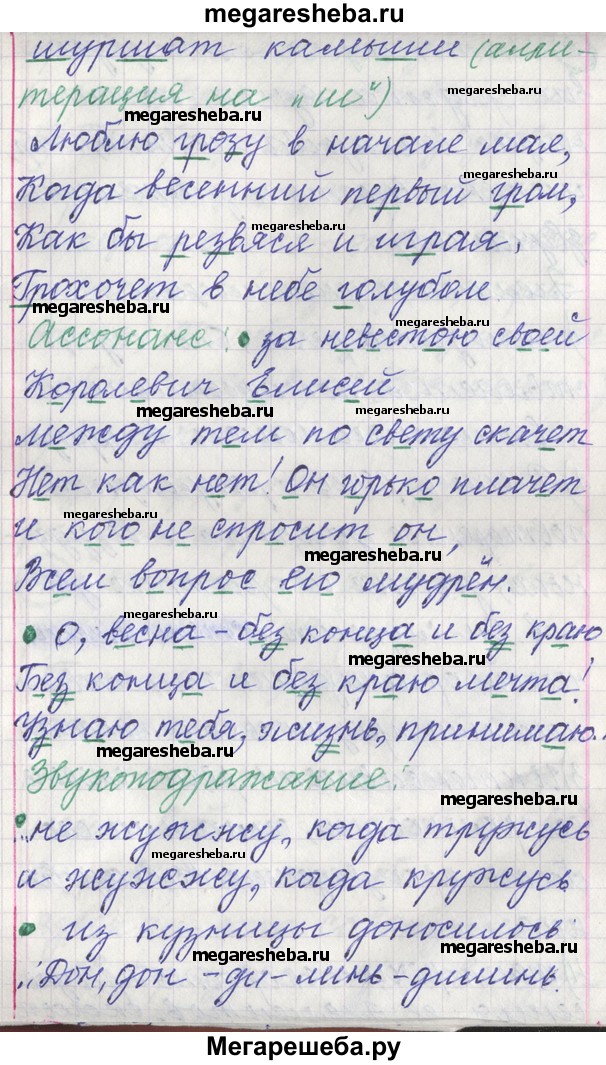 megaresheba.ru
шуршат камыши (алли-
megaresheba.ru
megaresheba.ru
терация на "ш")
megaresheba.ru
Люблю грозу в начале мая,
megaresheba.ru
Когда весенний первый гром,
megaresheba.ru
Как бы резвяся и играя,
megaresheba.ru
Грохочет в небе голубом.
megaresheba.ru
Ассонанс: • За невестою своей
Королевич Елисей
megaresheba.ru
megaresheba.ru
между тем по свету скачет
Нет как нет! Он горько плачет
megaresheba.ru
и кого не спросит он,
megaresheba.ru
Всем вопрос его мудрён.
megaresheba.ru
• О, весна - без конца и без краю
megaresheba.ru
Без конца и без краю мечта!
Узнаю тебя, жизнь, принимаю..
megaresheba.ru
Звукоподражание:
megaresheba.ru
• ..не жужжу, когда тружусь
megaresheba.ru
и жужжу, когда кружусь
• из кузницы доносилось:
megaresheba.ru
megaresheba.ru
.. Дон, дон - ди - линь - дилинь.
Мегарешеба.ру